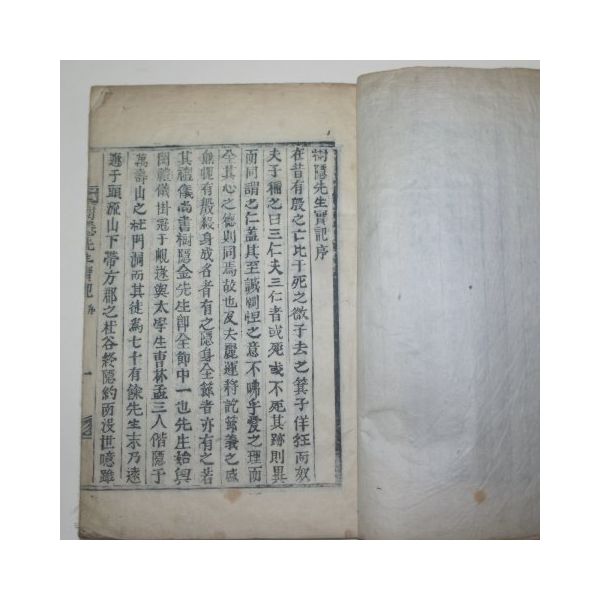 樹隱先生實記序
在昔有殷之亡比干死之微子去之箕子佯狂而奴
夫子稱之曰三仁夫三仁者或死或不死其跡則異
而同謂之仁盖其至誠惻怛之意不咈乎愛之理而
全其心之德則同焉故也及夫麗運將訖節義之盛
無觀有殷殺身成名者有之隱身全節者亦有之若
其禮儀尙書樹隱金先生卽全節中一也先生始與
圖禮儀掛冠于峴遂與太學生曹林孟三人偕隱于
萬壽山之杜門洞而其徒爲七十有餘先生末乃遠
遯于頭流山下帶方郡之杜谷終隱約而沒世噫雖
樹隱先生實記 序 一